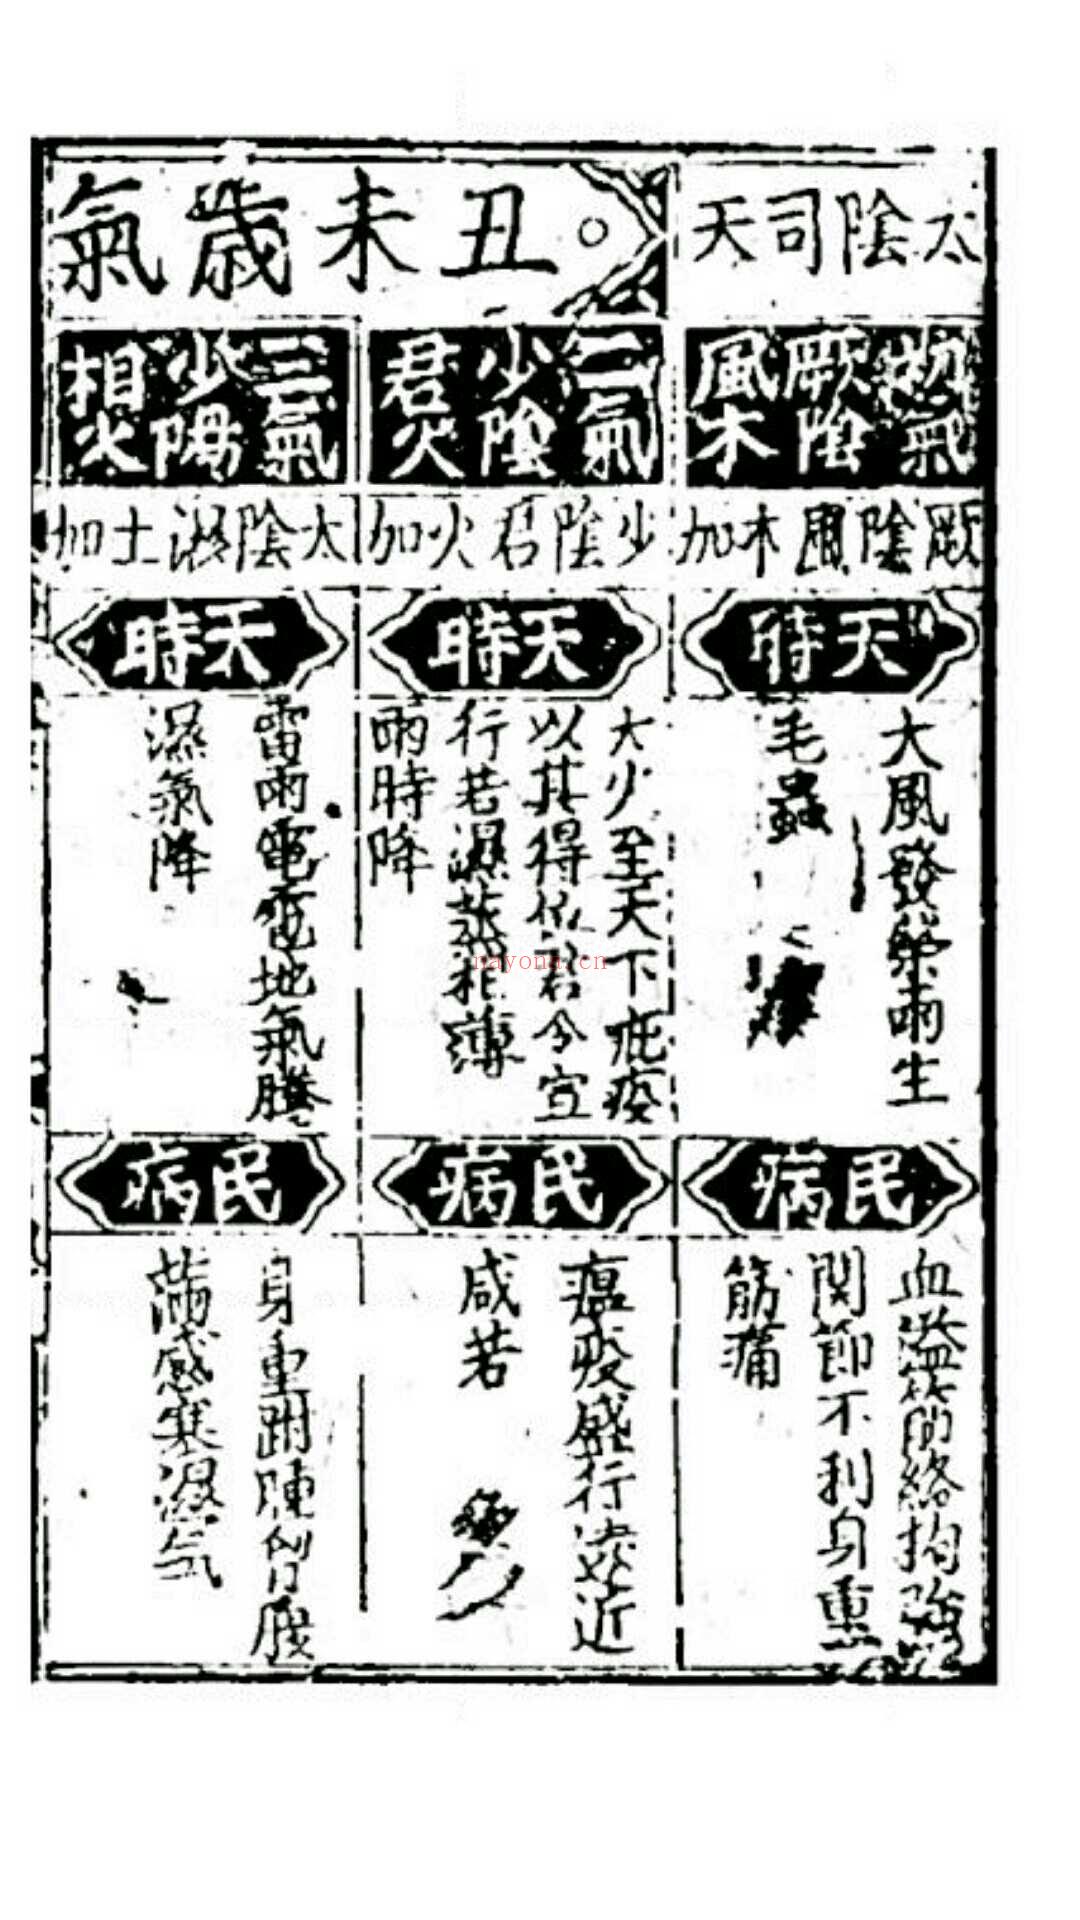 太陰司天
丑未歲氣
初氣
厥陰
風木
厥陰風木加
天時
大風發榮雨生
毛蟲
民病
血溢筋絡拘強
関節不利身重
筋痛
二氣
少陰
君火
少陰君火加
天時
大火至天下疵疫
以其得位君令宣
行若濕蒸相薄
雨時降
民病
瘟疫盛行遠近
咸若
三氣
少陽
相火
太陰濕土加
天時
雷雨電雹地氣騰
濕氣降
民病
身重跗腫胷腹
滿感寒濕气
nayona.cn